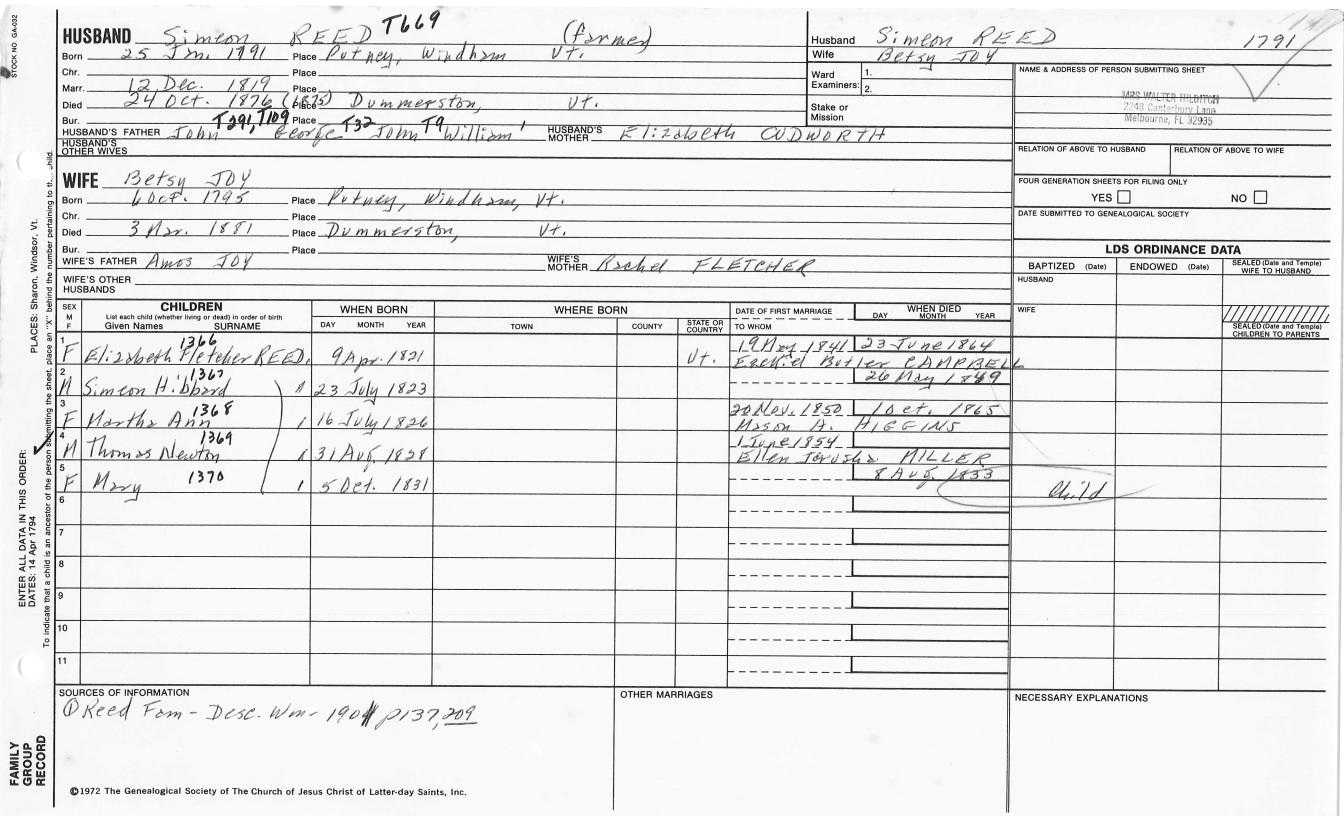 STOCK NO. GA-032
HUSBAND Simeon REED T669 (farmer)
Born 25 Jan. 1791 Place Putney, Windham Vt.
Chr. Place
Marr. 12 Dec. 1819 Place
Died 24 Oct. 1876 (1875) Place Dummerston, Vt.
Bur. Place
T291, T109 T32 T9
HUSBAND'S FATHER John George John William' HUSBAND'S MOTHER Elizabeth CUDWORTH
HUSBAND'S OTHER WIVES
Husband Simeon REED 1791
Wife Betsy JOY
Ward Examiners: 1. 2.
Stake or Mission
NAME & ADDRESS OF PERSON SUBMITTING SHEET
MRS WALTER HILDITCH
2248 Canterbury Lane
Melbourne, FL 32935
RELATION OF ABOVE TO HUSBAND RELATION OF ABOVE TO WIFE
FOUR GENERATION SHEETS FOR FILING ONLY
YES NO
DATE SUBMITTED TO GENEALOGICAL SOCIETY
WIFE Betsy JOY
Born 6 Oct. 1795 Place Putney, Windham, Vt.
Chr. Place
Died 3 Mar. 1881 Place Dummerston, Vt.
Bur. Place
WIFE'S FATHER Amos JOY WIFE'S MOTHER Rachel FLETCHER
WIFE'S OTHER HUSBANDS
LDS ORDINANCE DATA
BAPTIZED (Date) ENDOWED (Date) SEALED (Date and Temple) WIFE TO HUSBAND
HUSBAND
WIFE
SEALED (Date and Temple) CHILDREN TO PARENTS
SEX M F CHILDREN WHEN BORN WHERE BORN DATE OF FIRST MARRIAGE WHEN DIED
List each child (whether living or dead) in order of birth
Given Names SURNAME DAY MONTH YEAR TOWN COUNTY STATE OR COUNTRY TO WHOM DAY MONTH YEAR
1 1366 19 May 1841 23 June 1864
F Elizabeth Fletcher REED. 9 Apr. 1821 Vt. Ezekiel Butler CAMPBELL
2 1367 26 May 1849
M Simeon Hibbard 23 July 1823
3 1368 20 Nov. 1850 1 Oct. 1865
F Martha Ann 16 July 1826 Mason A. HIGGINS
4 1369 1 June 1854
M Thomas Newton 31 Aug. 1828 Ellen Jerusha MILLER
5 1370 8 Aug. 1833
F Mary 5 Oct. 1831 Child
6
7
8
9
10
11
SOURCES OF INFORMATION OTHER MARRIAGES NECESSARY EXPLANATIONS
① Reed Fam - Desc. Wm - 1901 p137, 209
©1972 The Genealogical Society of The Church of Jesus Christ of Latter-day Saints, Inc.
FAMILY GROUP RECORD
ENTER ALL DATA IN THIS ORDER:
DATES: 14 Apr 1794 PLACES: Sharon, Windsor, Vt.
To indicate that a child is an ancestor of the person submitting the sheet, place an "X" behind the number pertaining to th child.